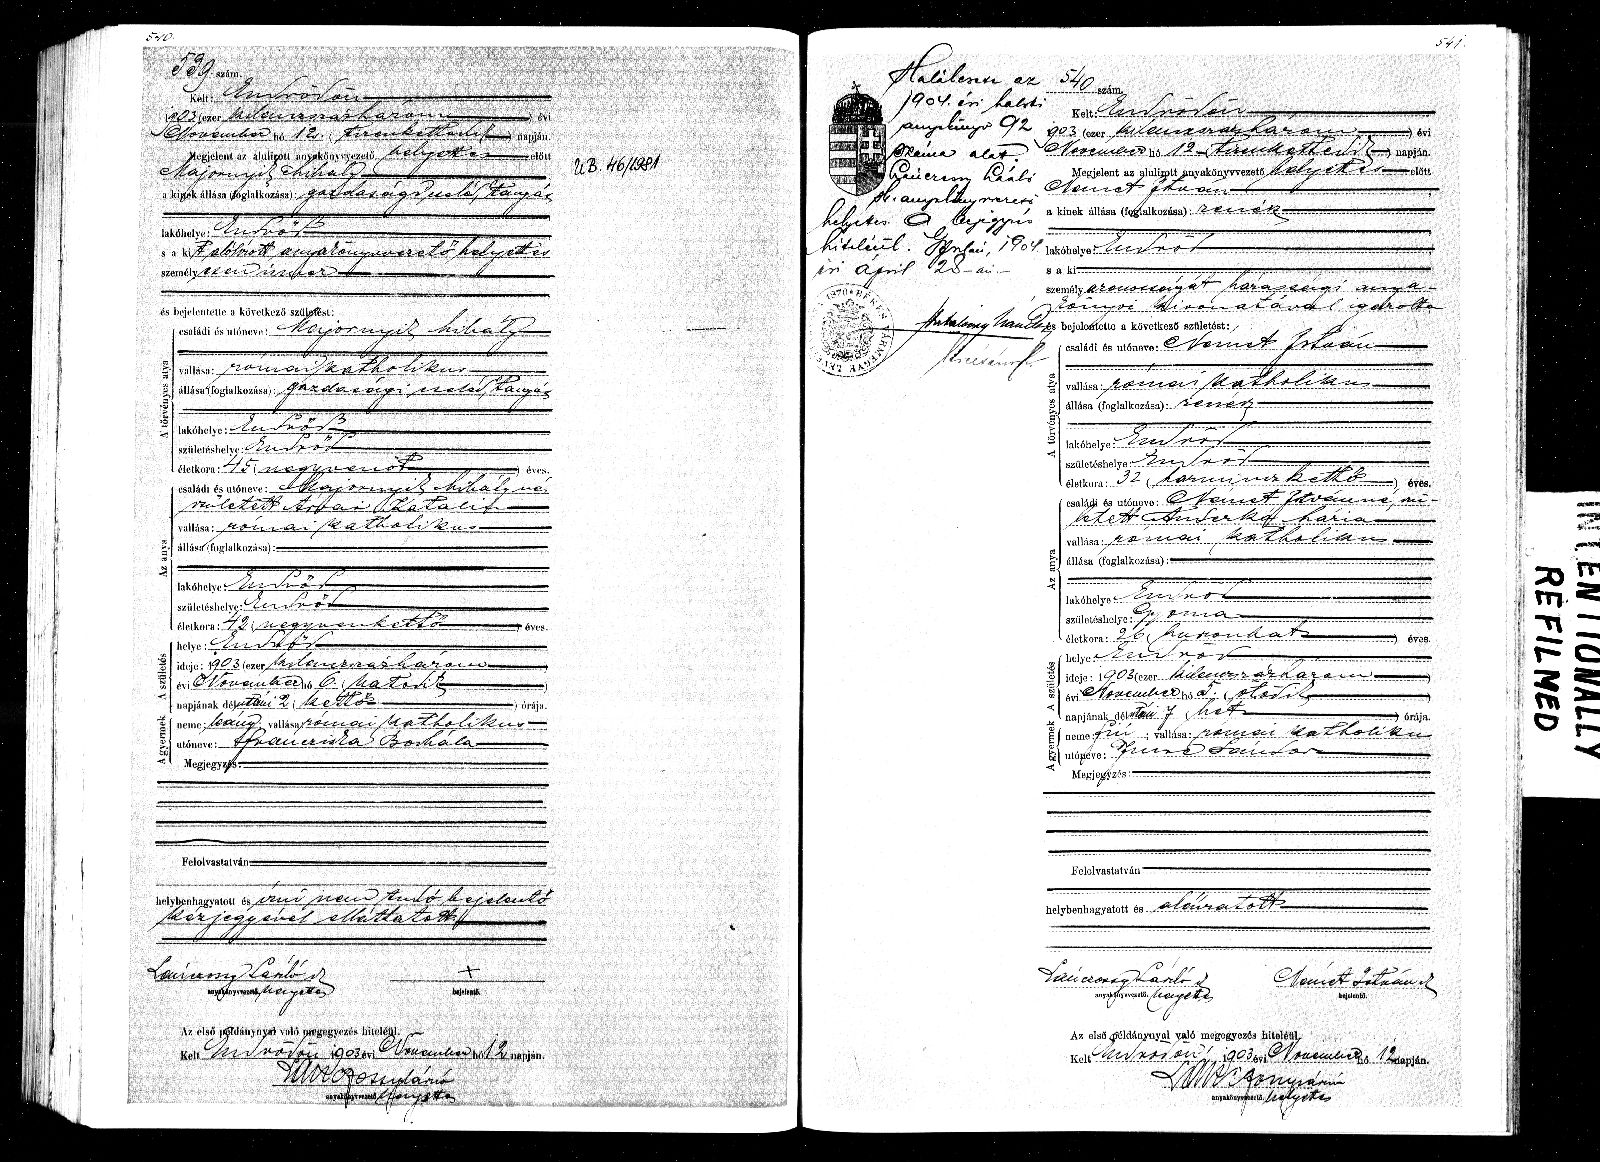 540.
539 szám.
Kelt: Endrődön
1903 (ezer kilenczszázhárom ) évi
November hó 12. ( tizenkettedik ) napján.
Megjelent az alulirott anyakönyvvezető helyettes előtt
Majornyik Mihály
a kinek állása (foglalkozása): gazdasági cseléd,
lakóhelye: Endrőd
s a ki
anyakönyvvezető helyettes
személyesen ismer
és bejelentette a következő születést:
A törvényes atya
családi és utóneve: Majornyik Mihály
vallása: római katholikus
állása (foglalkozása): gazdasági cseléd,
lakóhelye: Endrőd
születéshelye: Endrőd
életkora: 45 ( negyvenöt ) éves.
Az anya
családi és utóneve: Majornyik Mihályné,
született Katalin
vallása: római katholikus
állása (foglalkozása):
lakóhelye: Endrőd
születéshelye: Endrőd
életkora: 42 ( negyvenkettő ) éves.
A születés
helye: Endrőd
ideje: 1903 (ezer kilenczszázhárom )
évi November hó 6. ( hatodik )
napjának délutáni 2 ( kettő ) órája.
A gyermek
neme: leány vallása: római katholikus
utóneve: Francziska Borbála
Megjegyzés:
Felolvastatván
helybenhagyatott és írni nem tudó bejelentő
kézjegyével elláttatott.
László
+
anyakönyvvezető. helyettes
bejelentő.
Az első példánynyal való megegyezés hiteléül.
Kelt Endrődön 1903 évi November hó 12 napján.
anyakönyvvezető. helyettes
U.B. 46/1981
541.
Halálesete az
1904. évi halotti
anyakönyv 92
száma alatt.
László
h. anyakönyvvezető
helyettes. A bejegyzés
hiteléül. Gyulán, 1904.
évi április 28-án
540 szám.
Kelt: Endrődön
1903 (ezer kilenczszázhárom ) évi
November hó 12. ( tizenkettedik ) napján.
Megjelent az alulirott anyakönyvvezető helyettes előtt
Német István
a kinek állása (foglalkozása):
lakóhelye: Endrőd
s a ki
személyazonosságát házassági anya-
könyvi kivonatával igazolta
és bejelentette a következő születést:
A törvényes atya
családi és utóneve: Német István
vallása: római katholikus
állása (foglalkozása):
lakóhelye: Endrőd
születéshelye: Endrőd
életkora: 32 ( harminczkettő ) éves.
Az anya
családi és utóneve: Német Istvánné, szü-
letett Mária
vallása: római katholikus
állása (foglalkozása):
lakóhelye: Endrőd
születéshelye: Gyoma
életkora: 26 ( huszonhat ) éves.
A születés
helye: Endrőd
ideje: 1903 (ezer kilenczszázhárom )
évi November hó 5. ( ötödik )
napjának délutáni 7 ( hét ) órája.
A gyermek
neme: fiú ; vallása: római katholikus
utóneve: Imre Sándor
Megjegyzés:
Felolvastatván
helybenhagyatott és aláiratott
László
Német István
anyakönyvvezető. helyettes
bejelentő.
Az első példánynyal való megegyezés hiteléül.
Kelt Endrődön, 1903 évi November hó 12 napján.
anyakönyvvezető. helyettes
INTENTIONALLY
REFILMED